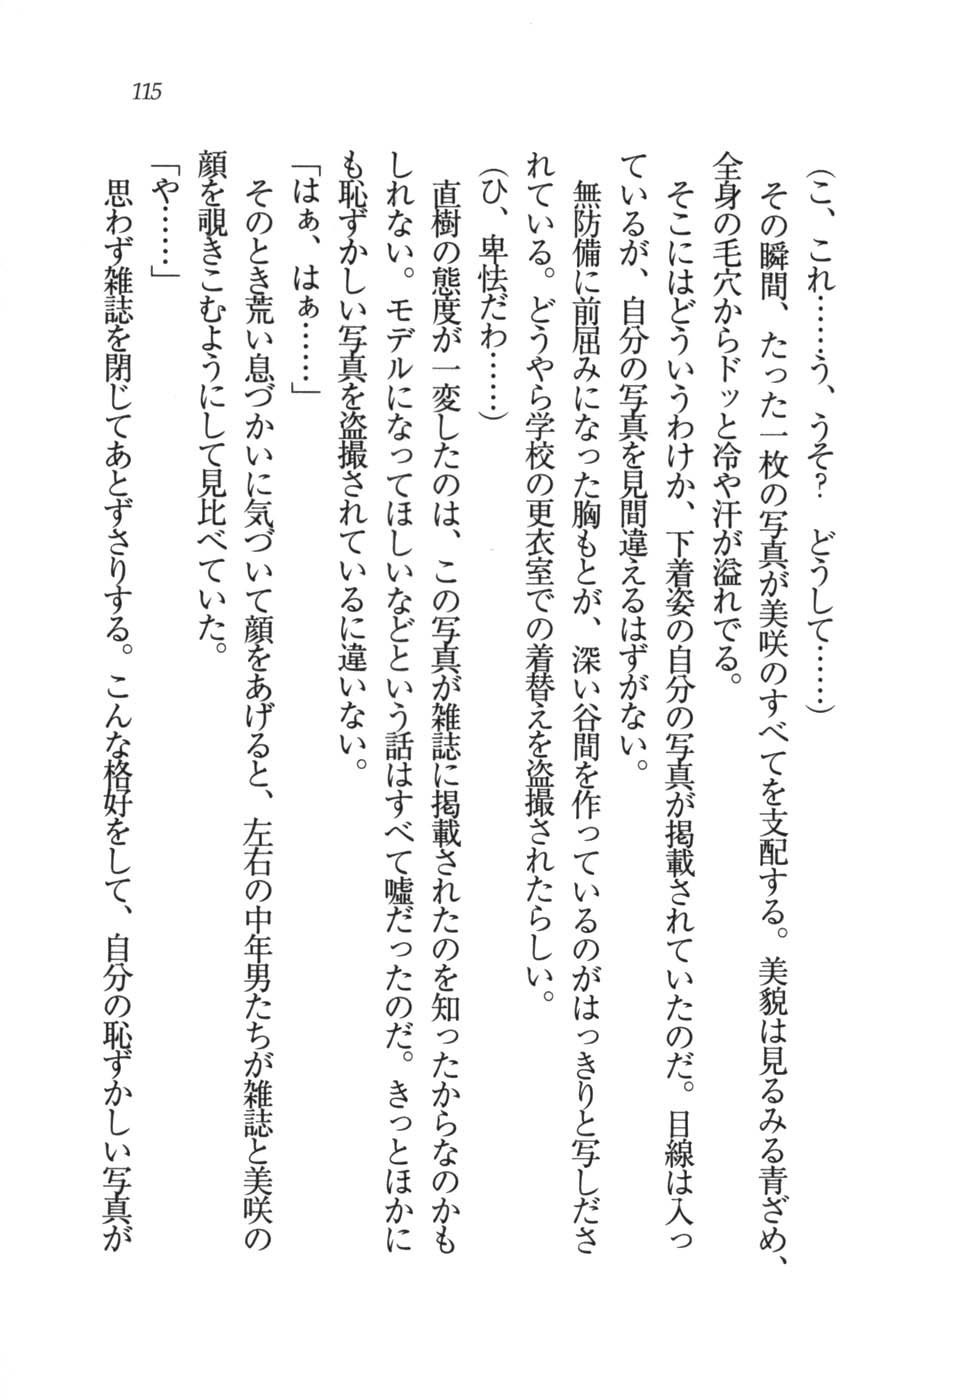 115
（こ、これ……う、うそ？　どうして……）
　その瞬間、たった一枚の写真が美咲のすべてを支配する。美貌は見るみる青ざめ、
全身の毛穴からドッと冷や汗が溢れでる。
　そこにはどういうわけか、下着姿の自分の写真が掲載されていたのだ。目線は入っ
ているが、自分の写真を見間違えるはずがない。
　無防備に前屈みになった胸もとが、深い谷間を作っているのがはっきりと写しださ
れている。どうやら学校の更衣室での着替えを盗撮されたらしい。
（ひ、卑怯だわ……）
　直樹の態度が一変したのは、この写真が雑誌に掲載されたのを知ったからなのかも
しれない。モデルになってほしいなどという話はすべて嘘だったのだ。きっとほかに
も恥ずかしい写真を盗撮されているに違いない。
「はぁ、はぁ……」
　そのとき荒い息づかいに気づいて顔をあげると、左右の中年男たちが雑誌と美咲の
顔を覗きこむようにして見比べていた。
「や……」
　思わず雑誌を閉じてあとずさりする。こんな格好をして、自分の恥ずかしい写真が